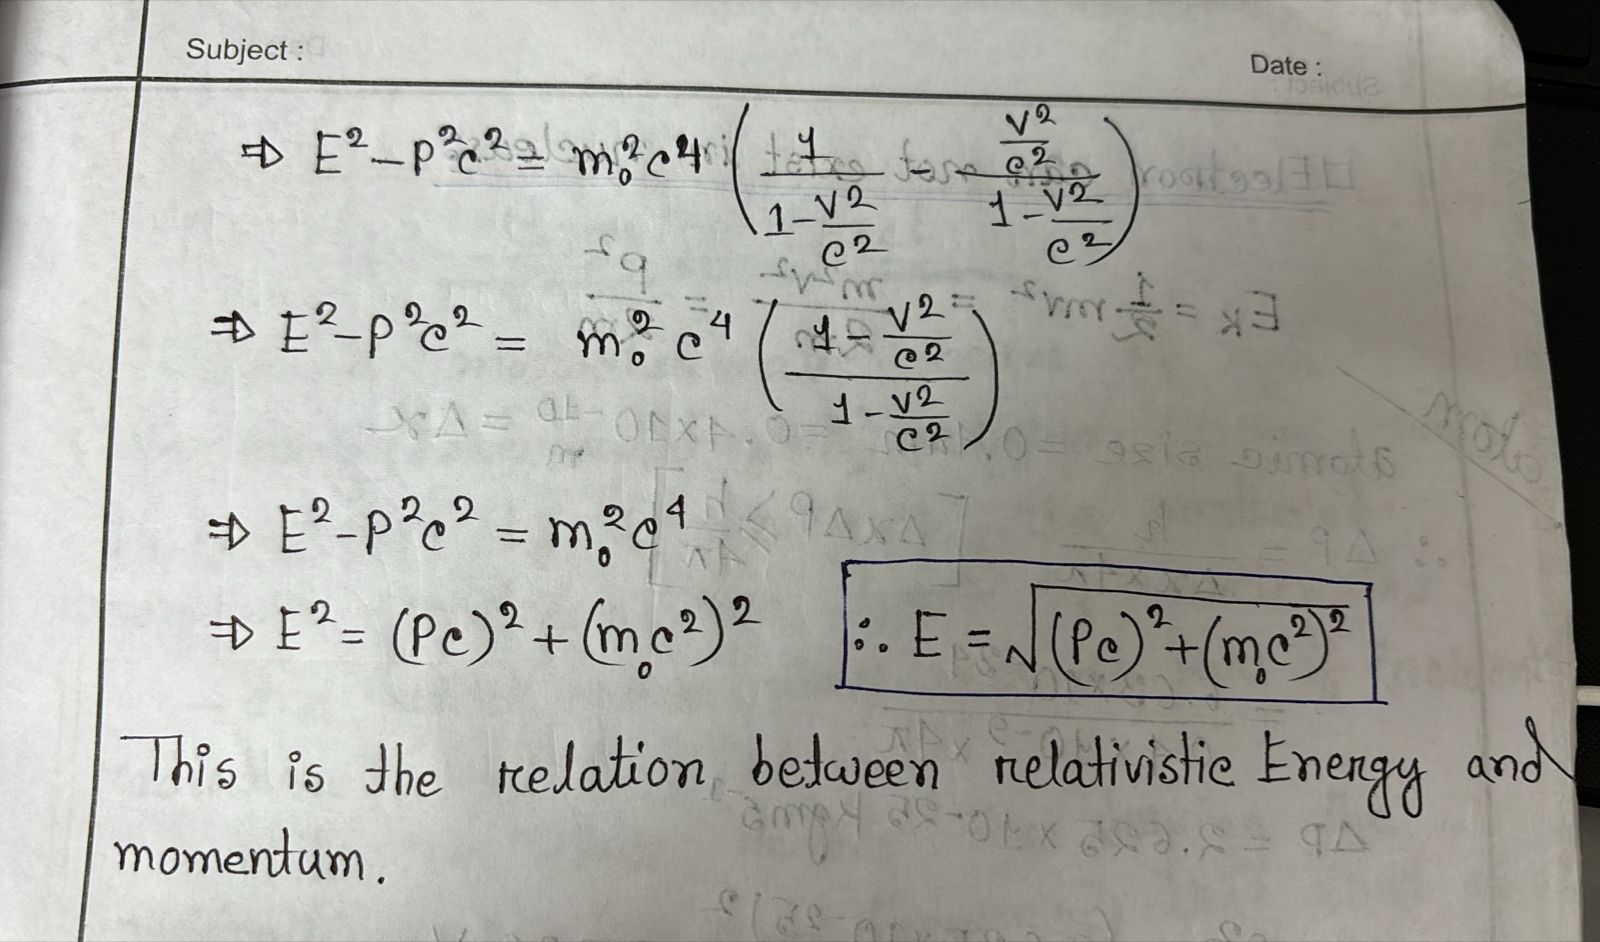 Subject :
Date :
⇒ E² - P²c² = m₀²c⁴ ( 1/(1 - v²/c²) - (v²/c²)/(1 - v²/c²) )
⇒ E² - P²c² = m₀²c⁴ ( (1 - v²/c²)/(1 - v²/c²) )
⇒ E² - P²c² = m₀²c⁴
⇒ E² = (Pc)² + (m₀c²)² ∴ E = √((Pc)² + (m₀c²)²)
This is the relation between relativistic Energy and
momentum.